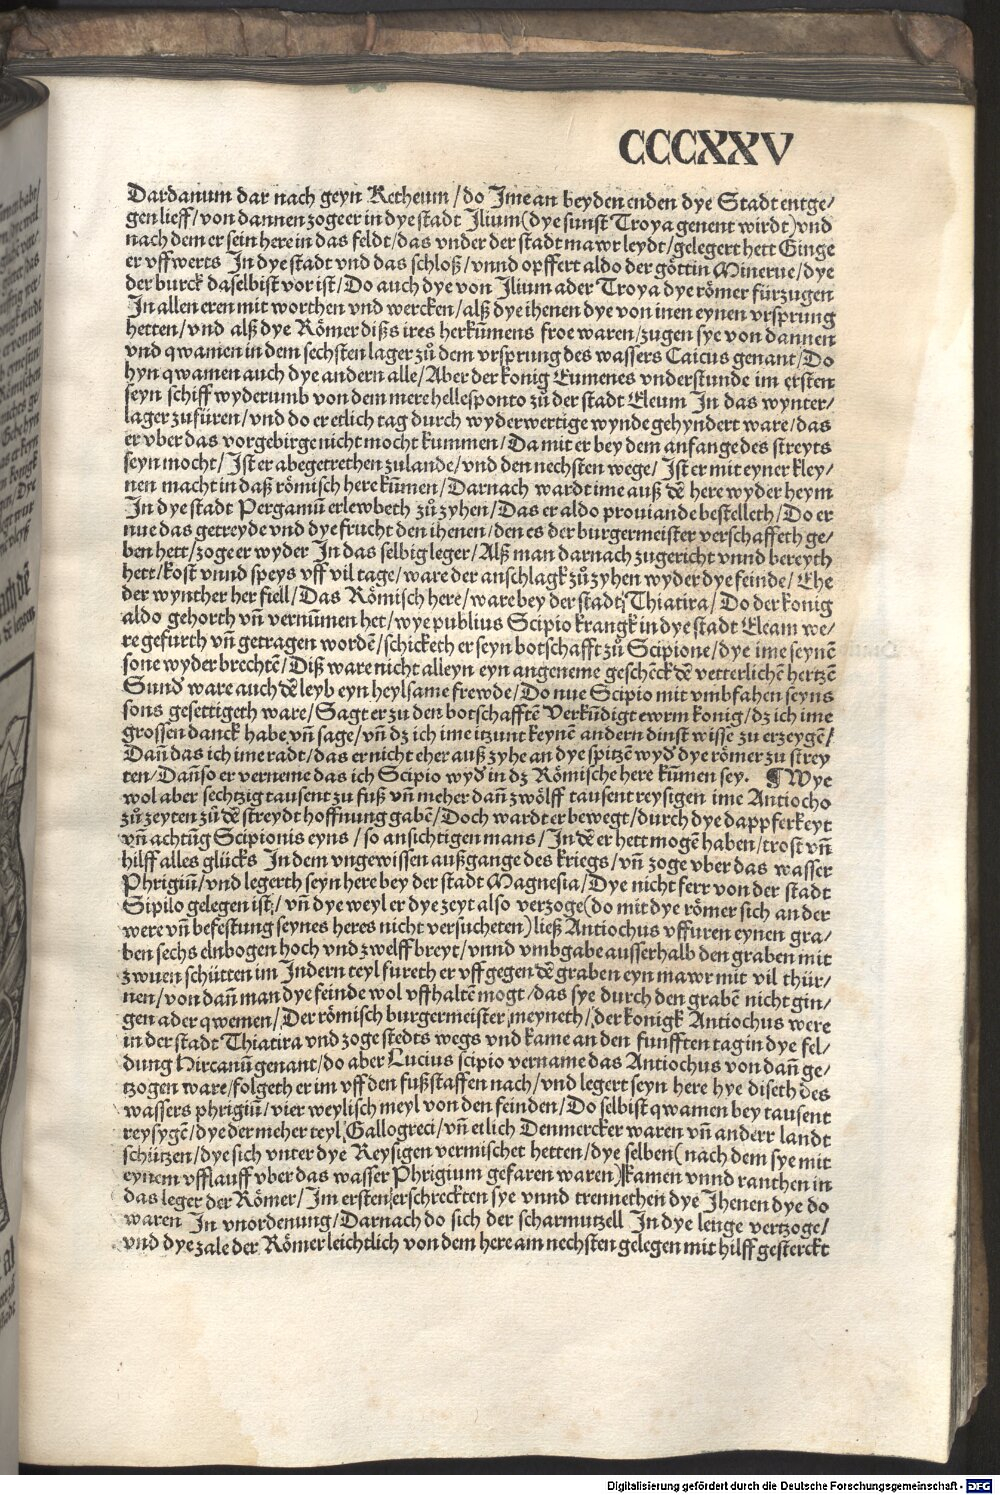 CCCXXV
Dardanum dar nach geyn Retheum/do Jme an beyden enden dye Stadt entge/
gen lieff/von dannen zoge er in dye stadt Jlium(dye sunst Troya genent wirdt)vnd
nach dem er sein here in das feldt/das vnder der stadt mawr leydt/gelegert hett Ginge
er vffwerts Jn dye stadt vnd das schloß/vnnd opffert aldo der göttin Minerue/dye
der burck daselbist vor ist/Do auch dye von Jlium ader Troya dye römer fürzugen
Jn allen eren mit worthen vnd wercken/alß dye ihenen dye von inen eynen vrsprung
hetten/vnd alß dye Römer dißs ires herkům̃ens froe waren/zugen sye von dannen
vnd qwamen in dem sechsten lager zů dem vrsprung des wassers Caicus genant/Do
hyn qwamen auch dye andern alle/Aber der konig Eumenes vnderstunde im ersten
seyn schiff wyderumb von dem mere hellesponto zů der stadt Eleum Jn das wynter/
lager zufüren/vnd do er etlich tag durch wyderwertige wynde gehyndert ware/das
er vber das vorgebirge nicht mocht kummen/Da mit er bey dem anfange des streyts
seyn mocht/Jst er abegetrethen zulande/vnd den nechsten wege/Jst er mit eyner kley/
nen macht in daß römisch here kům̃en/Darnach wardt ime auß dẽ here wyder heym
Jn dye stadt Pergamũ erlewbeth zů zyhen/Das er aldo prouiande bestelleth/Do er
nue das getreyde vnd dye frucht den ihenen/den es der burgermeister verschaffeth ge/
ben hett/zoge er wyder Jn das selbig leger/Alß man darnach zugericht vnnd bereyth
hett/kost vnnd speys vff vil tage/ware der anschlagk zů zyhen wyder dye feinde/Ehe
der wynther her fiell/Das Römisch here/ware bey der stadt Thiatira/Do der konig
aldo gehorth vñ vernům̃en het/wye publius Scipio krangk in dye stadt Eleam we/
re gefurth vñ getragen wordẽ/schicketh er seyn botschafft zů Scipione/dye ime seynẽ
sone wyder brechtẽ/Diß ware nicht alleyn eyn angeneme geschẽck dẽ vetterlichẽ hertzẽ
Sund̾ ware auch dẽ leyb eyn heylsame frewde/Do nue Scipio mit vmbfahen seyns
sons gesettigeth ware/Sagt er zu den botschafftẽ Verkũdigt ewrm konig/dz ich ime
grossen danck habe vñ sage/vñ dz ich ime itzunt keynẽ andern dinst wisse zu erzeygẽ/
Dañ das ich ime radt/das er nicht eher auß zyhe an dye spitzẽ wyd̾ dye römer zu strey
ten/Dañso er verneme das ich Scipio wyd̾ in dz Römische here kům̃en sey. ¶ Wye
wol aber sechtzig tausent zu fuß vñ meher dañ zwölff tausent reysigen ime Antiocho
zů zeyten zũ dẽ streydt hoffnung gabẽ/Doch wardt er bewegt/durch dye dappferkeyt
vñ achtũg Scipionis eyns/so ansichtigen mans/Jn dẽ er hett mogẽ haben/trost vñ
hilff alles glücks Jn dem vngewissen außgange des kriegs/vñ zoge vber das wasser
Phrigiũ/vnd legerth seyn here bey der stadt Magnesia/Dye nicht ferr von der stadt
Sipilo gelegen ist;/vñ dye weyl er dye zeyt also verzoge(do mit dye römer sich an der
were vñ befestung seynes heres nicht versucheten)ließ Antiochus vffuren eynen gra/
ben sechs elnbogen hoch vnd zwelff breyt/vnnd vmbgabe ausserhalb den graben mit
zwuen schütten im Jndern teyl fureth er vff gegen dẽ graben eyn mawr mit vil thür/
nen/von dañ man dye feinde wol vffhaltẽ mogt/das sye durch den grabẽ nicht gin/
gen ader qwemen/Der römisch burgermeister meyneth/der konigk Antiochus were
in der stadt Thiatira vnd zoge stedts wegs vnd kame an den funfften tag in dye fel/
dung Hircanũ genant/do aber Lucius scipio vername das Antiochus von dañ ge/
tzogen ware/folgeth er im vff den fußstaffen nach/vnd legert seyn here hye diseth des
wassers phrigiũ/vier weylisch meyl von den feinden/Do selbist qwamen bey tausent
reysygẽ/dye der meher teyl Gallogreci/vñ etlich Denmercker waren vñ anderr landt
schützen/dye sich vnter dye Reysigen vermischet hetten/dye selben(nach dem sye mit
eynem vfflauff vber das wasser Phrigium gefaren waren)kamen vnnd ranthen in
das leger der Römer/Jm ersten erschreckten sye vnnd trennethen dye Jhenen dye do
waren Jn vnordenung/Darnach do sich der scharmutzell Jn dye lenge vertzoge/
vnd dye zale der Römer leichtlich von dem here am nechsten gelegen mit hilff gesterckt
Digitalisierung gefördert durch die Deutsche Forschungsgemeinschaft - DFG